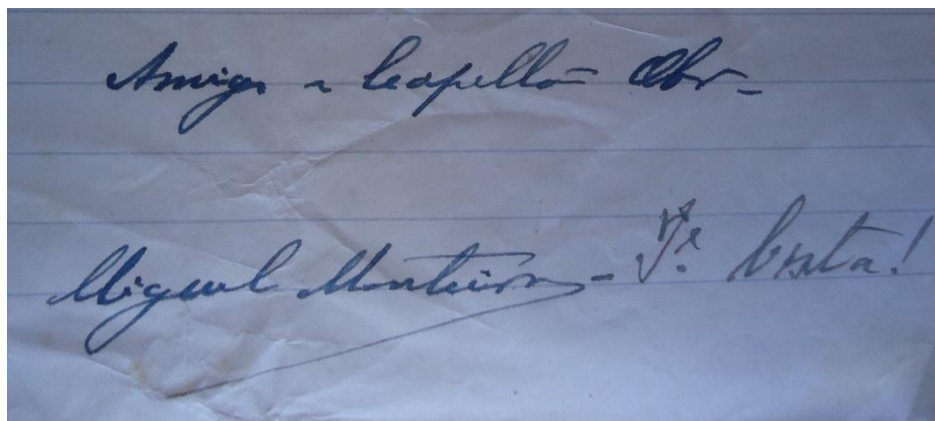 Amigo e Capellão Obr_
Miguel Monteiro - Pe. besta!